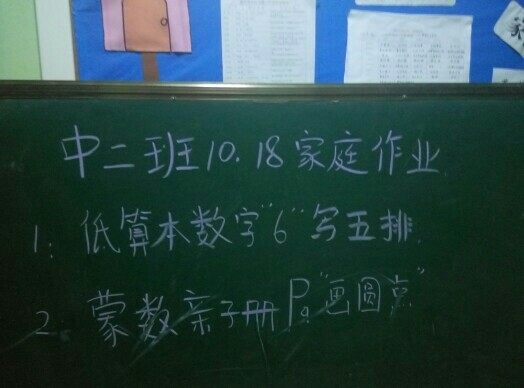 中二班10.18家庭作业
1: 低算本数字"6"写五排
2. 蒙数亲子册P9"画圆点"